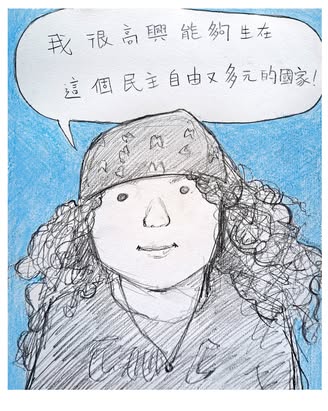 我很高興能夠生在
這個民主自由又多元的國家!